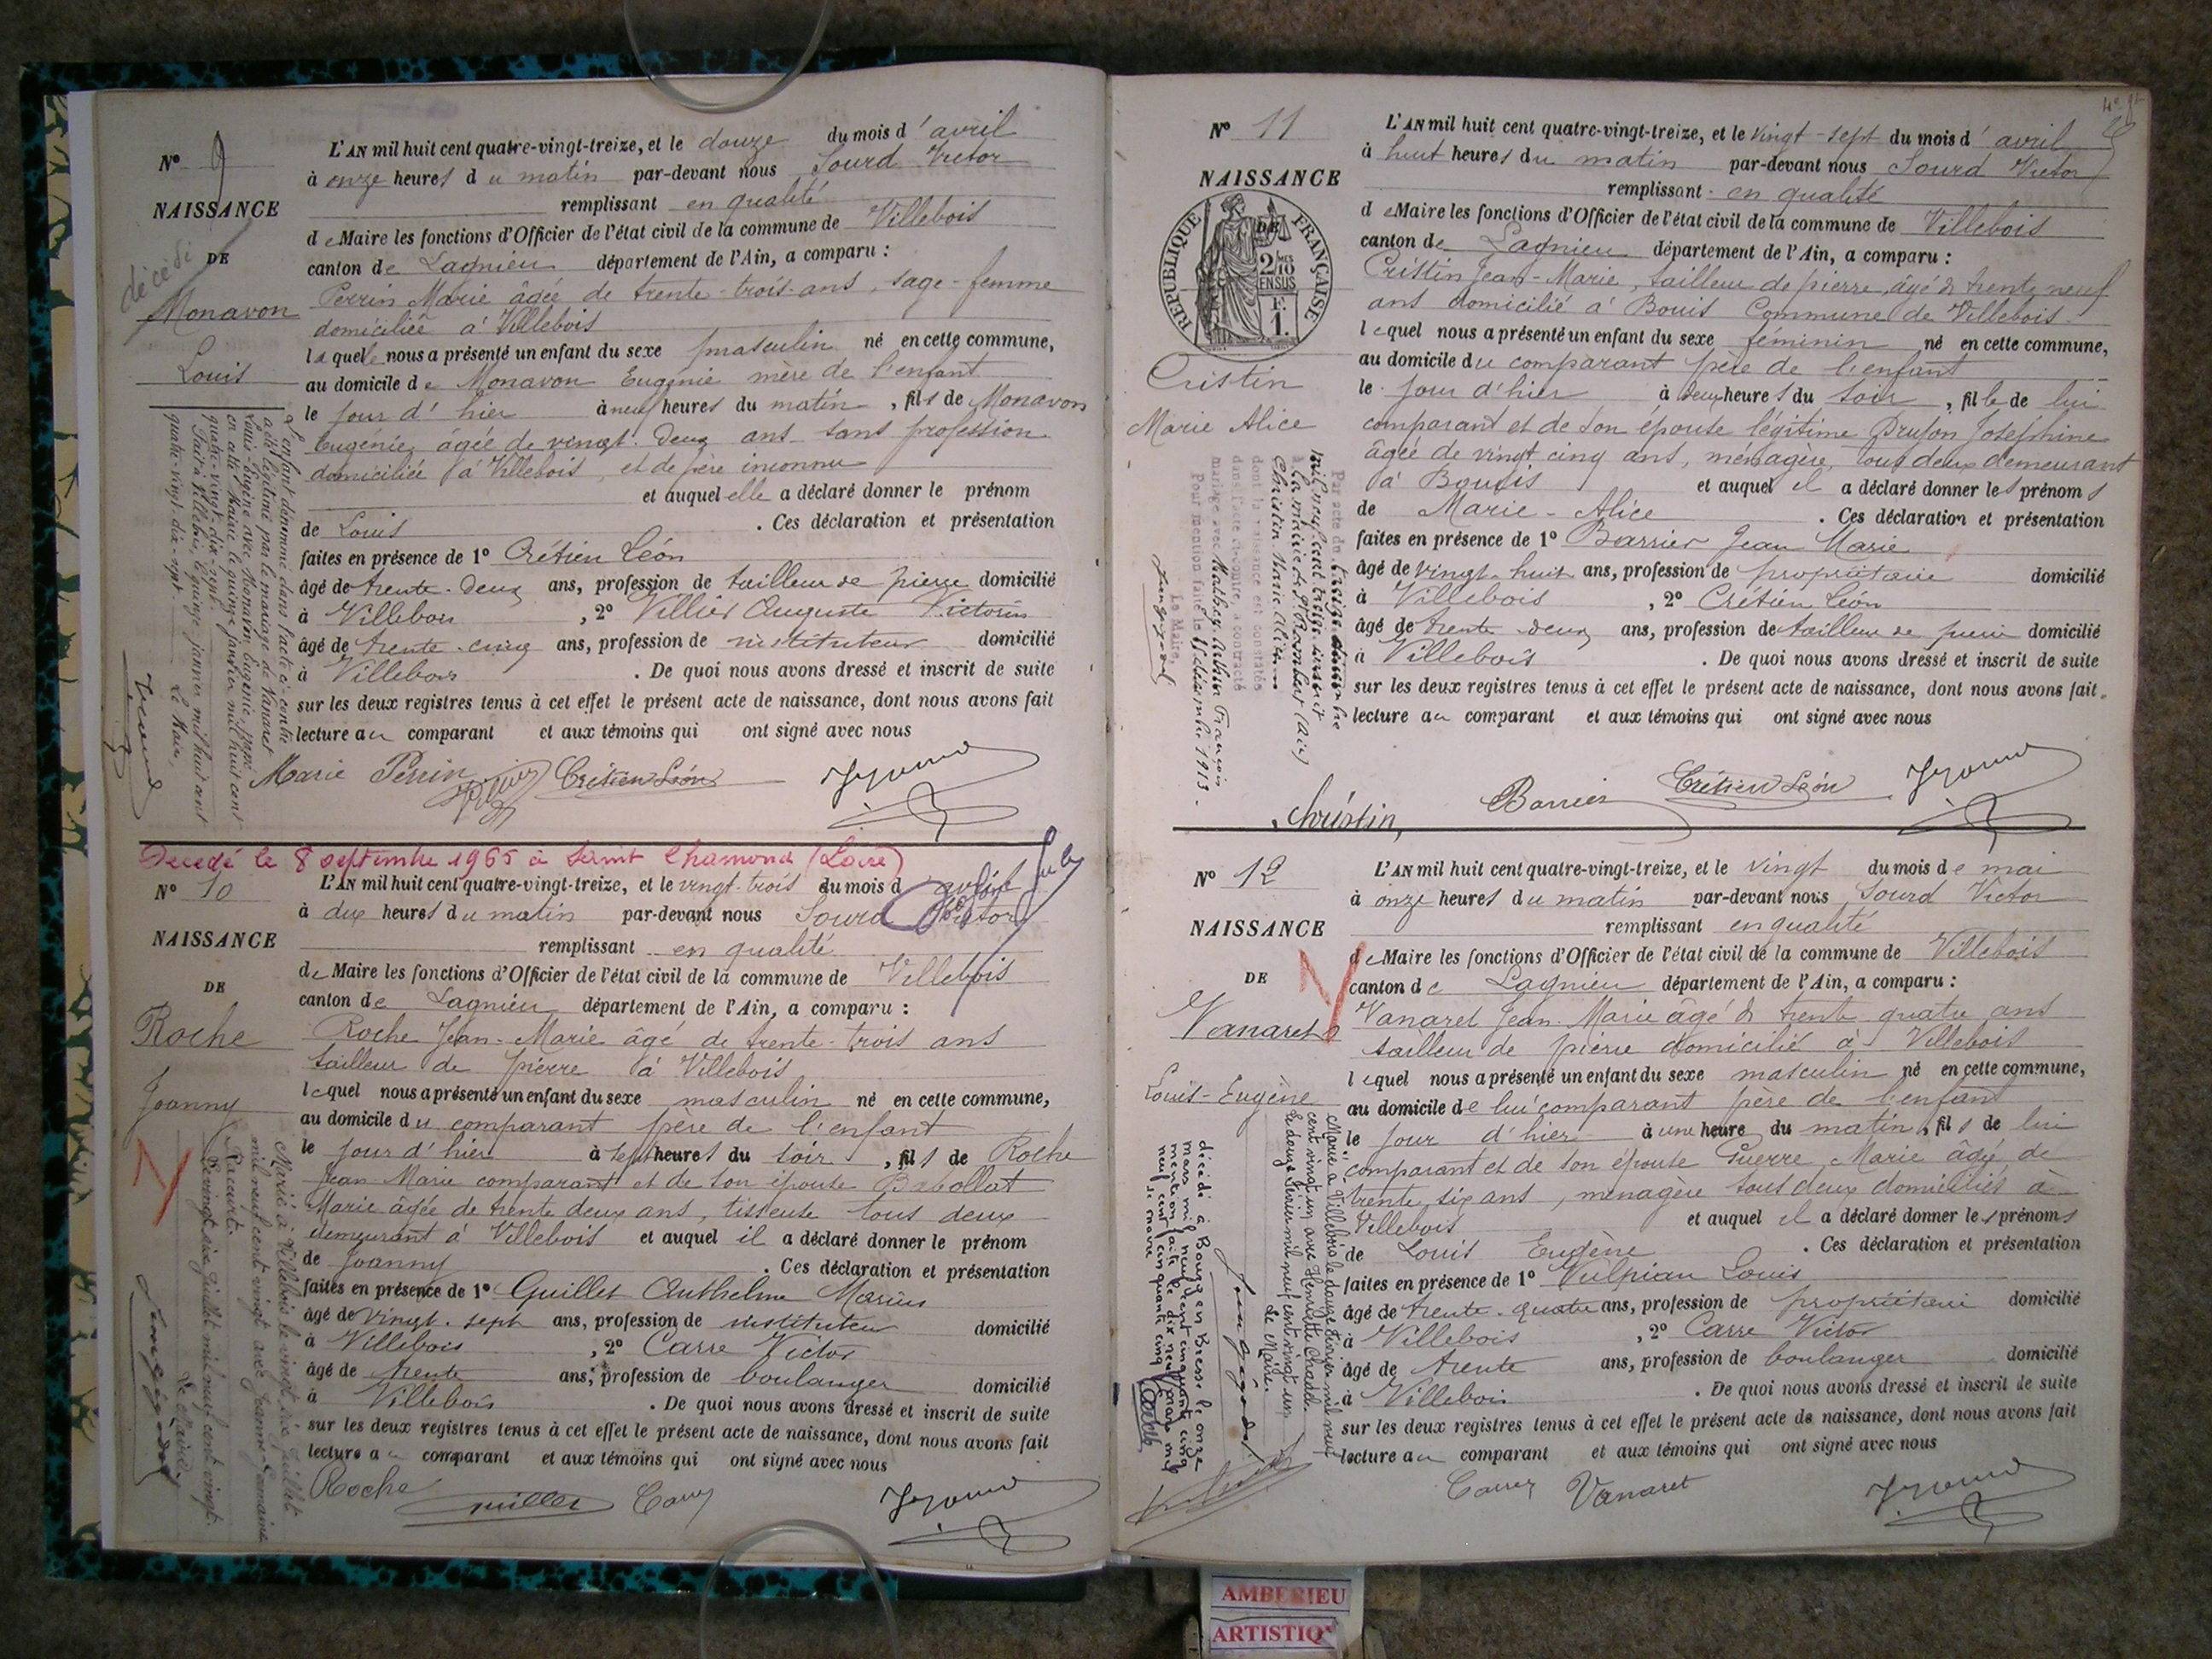 Nº 9
NAISSANCE
DE
décédé
Monavon
Louis
L'AN mil huit cent quatre-vingt-treize, et le douze du mois d'avril
à onze heures du matin par-devant nous Sourd Victor
remplissant en qualité
de Maire les fonctions d'Officier de l'état civil de la commune de Villebois
canton de Lagnieu département de l'Ain, a comparu :
Perrin Marie âgée de trente-trois ans, sage-femme
domiciliée à Villebois
laquelle nous a présenté un enfant du sexe masculin né en cette commune,
au domicile de Monavon Eugénie mère de l'enfant
le jour d'hier à neuf heures du matin, fils de Monavon
Eugénie, âgée de vingt-deux ans sans profession
domiciliée à Villebois, et de père inconnu
et auquel elle a déclaré donner le prénom
de Louis. Ces déclaration et présentation
faites en présence de 1º Crétien Léon
âgé de trente-deux ans, profession de tailleur de pierre domicilié
à Villebois, 2º Villier Auguste Victorin
âgé de trente-cinq ans, profession de instituteur domicilié
à Villebois. De quoi nous avons dressé et inscrit de suite
sur les deux registres tenus à cet effet le présent acte de naissance, dont nous avons fait
lecture au comparant et aux témoins qui ont signé avec nous
Marie Perrin Crétien Léon
L'enfant dénommé dans l'acte ci-contre
a été légitimé par le mariage de Vanaret
Louis-Eugène avec Monavon Eugénie,
en cette Mairie le quinze janvier mil huit cent
quatre-vingt-dix-sept.
Fait à Villebois, le quinze janvier mil huit cent
quatre-vingt-dix-sept. Le Maire,
Decedé le 8 septembre 1965 à Saint Chamond (Loire)
Nº 10
NAISSANCE
DE
Roche
Joanny
L'AN mil huit cent quatre-vingt-treize, et le vingt-trois du mois d'avril
à dix heures du matin par-devant nous Sourd Victor
remplissant en qualité
de Maire les fonctions d'Officier de l'état civil de la commune de Villebois
canton de Lagnieu département de l'Ain, a comparu :
Roche Jean-Marie âgé de trente-trois ans
tailleur de pierre à Villebois
lequel nous a présenté un enfant du sexe masculin né en cette commune,
au domicile du comparant père de l'enfant
le jour d'hier à sept heures du soir, fils de Roche
Jean Marie comparant et de son épouse Babollat
Marie âgée de trente deux ans, tisseuse tous deux
demeurant à Villebois et auquel il a déclaré donner le prénom
de Joanny. Ces déclaration et présentation
faites en présence de 1º Guillet Anthelme Marius
âgé de vingt-sept ans, profession de instituteur domicilié
à Villebois, 2º Carre Victor
âgé de trente ans, profession de boulanger domicilié
à Villebois. De quoi nous avons dressé et inscrit de suite
sur les deux registres tenus à cet effet le présent acte de naissance, dont nous avons fait
lecture au comparant et aux témoins qui ont signé avec nous
Roche
Marié à Villebois le vingt six Juillet
mil neuf cent vingt avec Jeanne-Germaine
Le vingt six Juillet mil neuf cent vingt.
Le Maire,
Nº 11
NAISSANCE
DE
REPUBLIQUE FRANÇAISE
2/10 EN SUS
F. 1.
Cristin
Marie Alice
L'AN mil huit cent quatre-vingt-treize, et le vingt-sept du mois d'avril
à huit heures du matin par-devant nous Sourd Victor
remplissant en qualité
de Maire les fonctions d'Officier de l'état civil de la commune de Villebois
canton de Lagnieu département de l'Ain, a comparu :
Cristin Jean-Marie, tailleur de pierre, âgé de trente neuf
ans domicilié à Bouis Commune de Villebois
lequel nous a présenté un enfant du sexe féminin né en cette commune,
au domicile du comparant père de l'enfant
le jour d'hier à deux heures du soir, fille de lui
comparant et de son épouse légitime Drujon Joséphine
âgée de vingt cinq ans, ménagère, tous deux demeurant
à Bouis et auquel il a déclaré donner les prénoms
de Marie-Alice. Ces déclaration et présentation
faites en présence de 1º Barrier Jean Marie
âgé de vingt-huit ans, profession de propriétaire domicilié
à Villebois, 2º Crétien Léon
âgé de trente deux ans, profession de tailleur de pierre domicilié
à Villebois. De quoi nous avons dressé et inscrit de suite
sur les deux registres tenus à cet effet le présent acte de naissance, dont nous avons fait
lecture au comparant et aux témoins qui ont signé avec nous
Christin, Barrier Crétien Léon
Par acte du treize décembre
mil neuf cent treize inscrit
à la mairie de St Rambert (Ain)
Christin Marie Alice
dont la naissance est constatée
dans l'acte ci-contre, a contracté
mariage avec Mathey Arthur François
Pour mention faite le 15 décembre 1913.
Le Maire,
Nº 12
NAISSANCE
DE
Vanaret
Louis-Eugène
L'AN mil huit cent quatre-vingt-treize, et le vingt du mois de mai
à onze heures du matin par-devant nous Sourd Victor
remplissant en qualité
de Maire les fonctions d'Officier de l'état civil de la commune de Villebois
canton de Lagnieu département de l'Ain, a comparu :
Vanaret Jean-Marie âgé de trente quatre ans
tailleur de pierre domicilié à Villebois
lequel nous a présenté un enfant du sexe masculin né en cette commune,
au domicile de lui comparant père de l'enfant
le jour d'hier à une heure du matin, fils de lui
comparant et de son épouse Guerre Marie âgée de
trente six ans, ménagère tous deux domiciliés à
Villebois et auquel il a déclaré donner les prénoms
de Louis Eugène. Ces déclaration et présentation
faites en présence de 1º Vulpian Louis
âgé de trente-quatre ans, profession de propriétaire domicilié
à Villebois, 2º Carre Victor
âgé de trente ans, profession de boulanger domicilié
à Villebois. De quoi nous avons dressé et inscrit de suite
sur les deux registres tenus à cet effet le présent acte de naissance, dont nous avons fait
lecture au comparant et aux témoins qui ont signé avec nous
Vanaret
Marié à Villebois le douze février mil neuf
cent vingt un avec Henriette Chardel.
Le douze février mil neuf cent vingt un
Le Maire.
décédé à Bourg en Bresse le onze
mars mil neuf cent cinquante cinq
mention faite le dix neuf mars mil
neuf cent cinquante cinq
le maire
AMBERIEU
ARTISTIQ